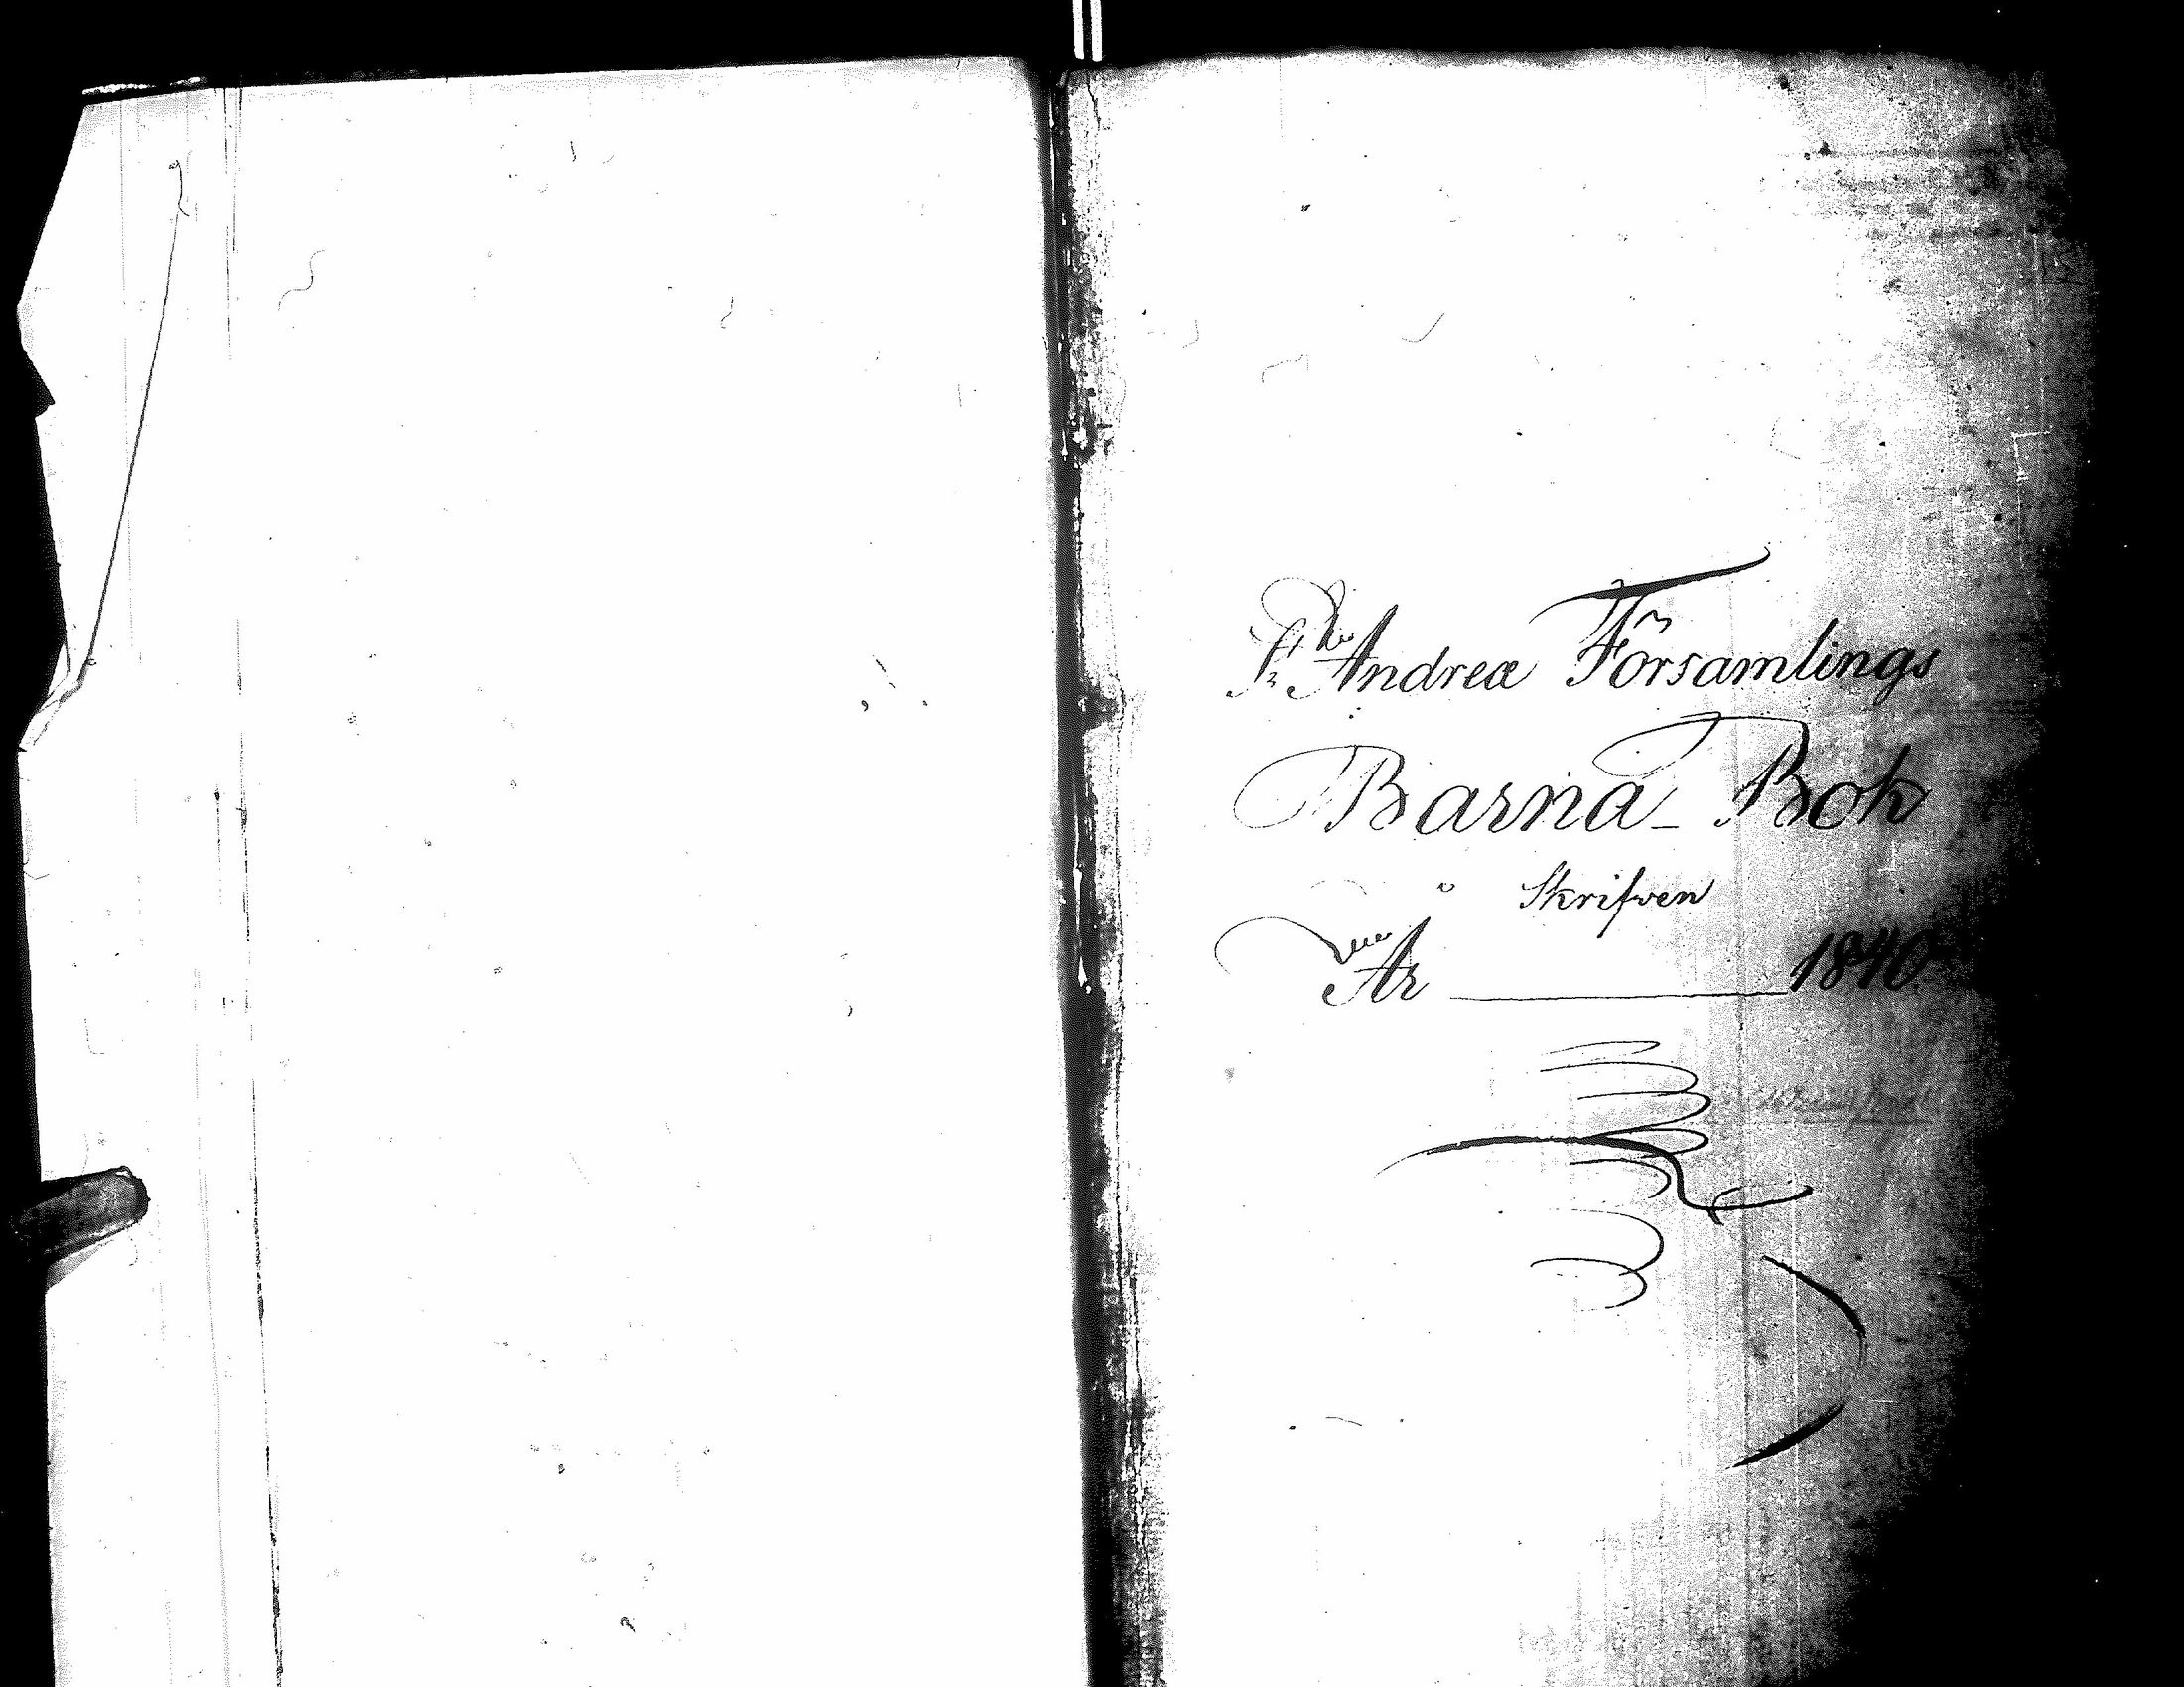 St Andreæ Församlings
Barna-Bok
Skrifven
År 1840